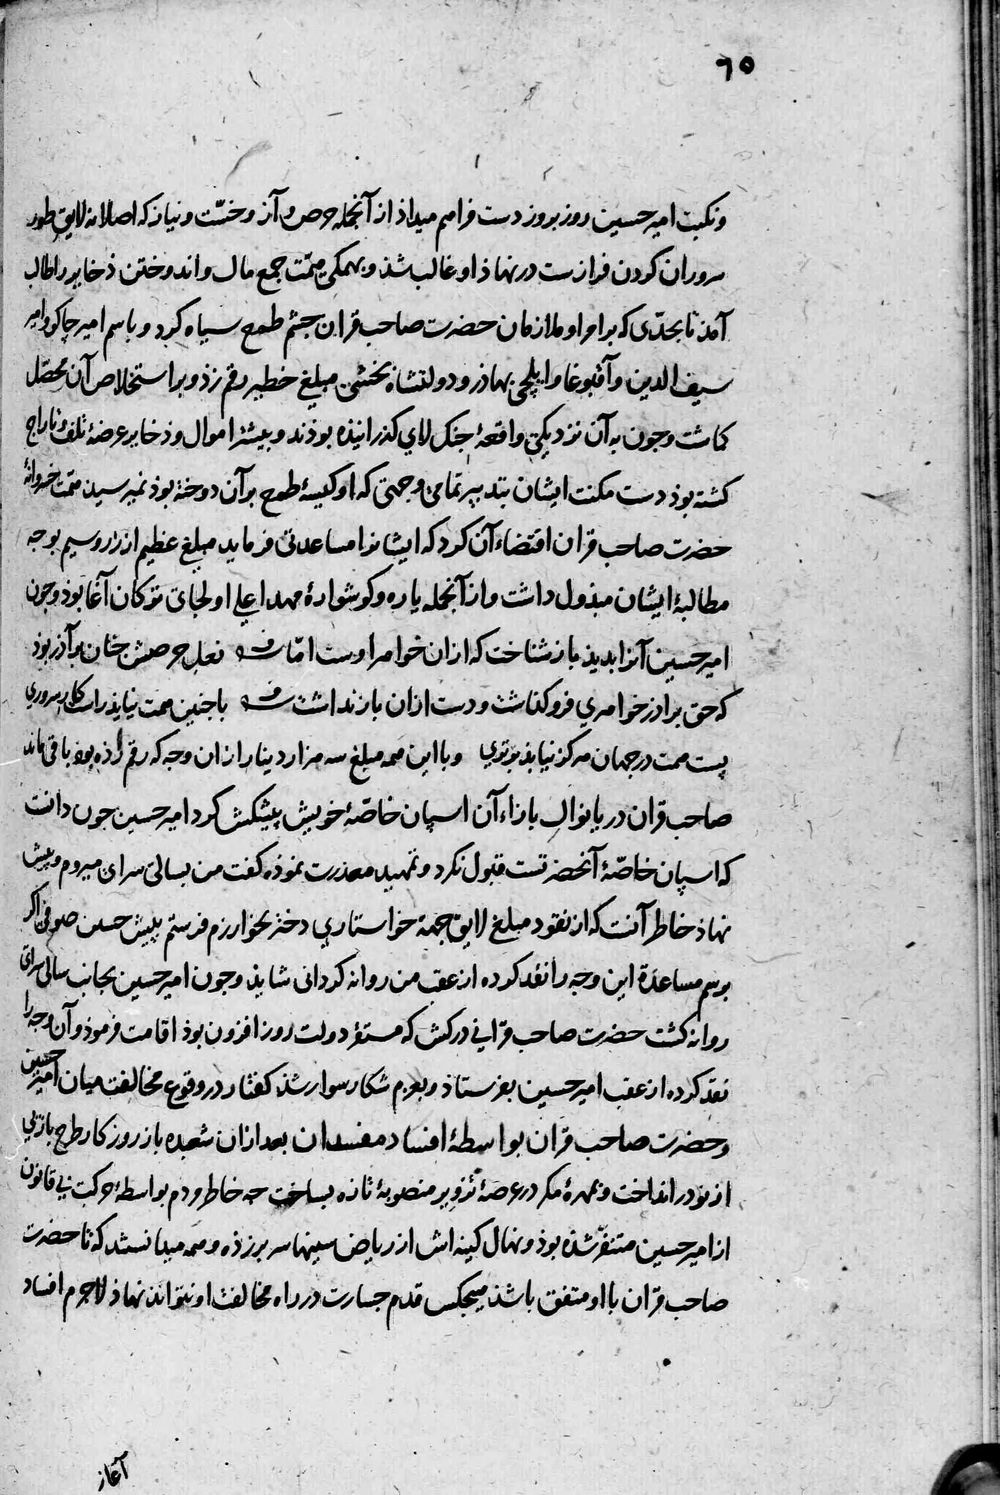 ٦٥
ونکبت امیر حسین روز بروز دست فراهم میداذ از آنجمله حرص و آز و خسّت و نیاز که اصلا نه لایق طور
سروران کردن فرازست در نهاذ او غالب شذ و بهمکی همّت جمع مال و اندوختن ذخایر را طالب
آمذ تا بحدّی که بر امرا و ملازمان حضرت صاحب قران جشم طمع سیاه کرد و باسم امیر جاکو و امیر
سیف الدین و آقبوغا و ایلچی بهاذر و دولتشاه بخشی مبلغ خطیر رقم زذ و بر استخلاص آن محصّل
کماشت و جون به آن نزدیکی واقعهٔ جنک لای کذرانیذه بوذند و بیشتر اموال و ذخایر عرضهٔ تلف و تاراج
کشته بوذ دست مکنت ایشان بتدبیر تمامی وجهی که او کیسهٔ طمع بر آن دوخته بوذ نمیرسید همّت خسروانهٔ
حضرت صاحب قران اقتضاء آن کرد که ایشانرا مساعدتی فرماید مبلغ عظیم از زر و سیم بوجه
مطالبهٔ ایشان مبذول داشت و از آنجمله یاره و کوشوارهٔ مهد اعلی اولجای ترکان آغا بوذ و جون
امیر حسین آنرا بدیذ باز شناخت که از ان خواهر اوست امّا نعل حرصش جنان بر آذر بوذ
که حق براذر خواهری فرو کذاشت و دست ازان باز نداشت با جنین همت نیایذ راست کار سروری
پست همت در جهان هرکز نیابذ برتری و با این همه مبلغ سه هزار دینار از ان وجه که رقم زذه بوذ باقی ماند
صاحب قران دریا نوال بازاء آن اسپان خاصّهٔ خویش پیشکش کرد امیر حسین جون دانست
که اسپان خاصّهٔ آنحضرتست قبول نکرد و تمهید معذرت نموذه کفت من بسالی سرای میروم و پیش
نهاذ خاطر آنست که از نقود مبلغ لایق جهة خواستاری دختر بخوارزم فرستم پیش حسین صوفی اکر
برسم مساعدة این وجه را نقد کرده از عقب من روانه کردانی شایذ و جون امیر حسین بجانب سالی سرای
روانه کشت حضرت صاحب قرانی در کش که مستقرّ دولت روز افزون بوذ اقامت فرموذ و آن وجه را
نقد کرده از عقب امیر حسین بفرستاذ و بعزم شکار سوار شذ کفتار در وقوع مخالفت میان امیر حسین
و حضرت صاحب قران بواسطهٔ افساد مفسدان بعد ازان شعبده باز روزکار طرح بازیی
از نو در انداخت و مهرهٔ مکر در عرصهٔ تزویر منصوبهٔ تازه بساخت جه خاطر مردم بواسطهٔ حرکت بی قانون
از امیر حسین متنفّر شذه بوذ و نهال کینه اش از ریاض سینها سر بر زذه و همه میدانستند که تا حضرت
صاحب قران با او متفق باشذ هیجکس قدم جسارت در راه مخالفت او نتواند نهاذ لاجرم افساد
آغاز